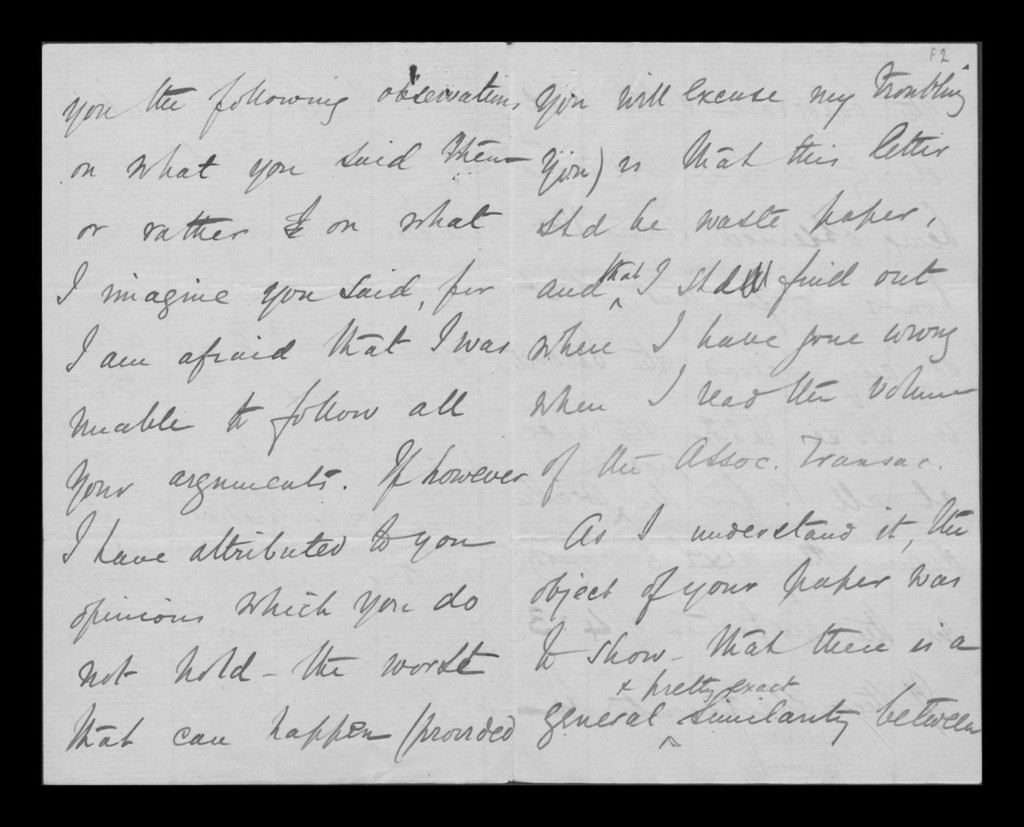 F2
you the following observations
on what you said then
or rather on what
I imagine you said, for
I am afraid that I was
unable to follow all
your arguments. If however
I have attributed to you
opinions which you do
not hold – the worst
that can happen (provided
you will excuse my troubling
you) is that this letter
shd be waste paper,
and that I shd find out
where I have gone wrong
when I read the volume
of the Assoc. Transac.
As I understand it, the
object of your paper was
to show – that there is a
general & pretty exact similarity between